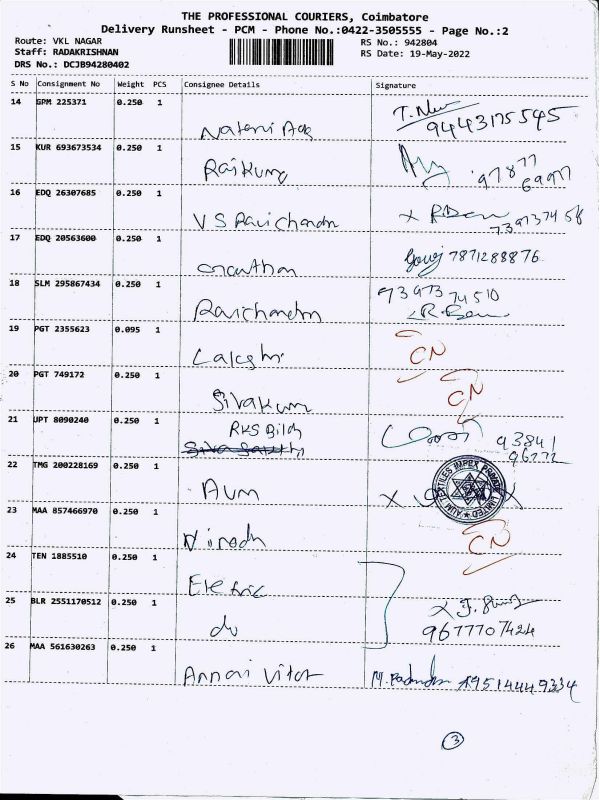 THE PROFESSIONAL COURIERS, Coimbatore
Delivery Runsheet - PCM - Phone No.:0422-3505555 - Page No.:2
Route: VKL NAGAR
RS No.: 942804
Staff: RADAKRISHNAN
RS Date: 19-May-2022
DRS No.: DCJB94280402
S No Consignment No Weight PCS Consignee Details Signature
14 GPM 225371 0.250 1
9443175545
15 KUR 693673534 0.250 1 Rajkumar
97877
69977
16 EDQ 26307685 0.250 1 V S Ravichandran
739737458
17 EDQ 20563600 0.250 1 Gowj 7871288876
18 SLM 295867434 0.250 1 Ravichandran
73973 74510
19 PGT 2355623 0.095 1 Lakshmi CN
20 PGT 749172 0.250 1 Sivakum CN
21 UPT 8090240 0.250 1 RKS Bldg
93841
96772
22 TMG 200228169 0.250 1 Aum
AUM TEXTILES IMPEX PRIVATE LIMITED
23 MAA 857466970 0.250 1 Vinodh CN
24 TEN 1885510 0.250 1 Eletric
25 BLR 2551170512 0.250 1 do
9677707424
26 MAA 561630263 0.250 1 Annai Vilas 9514449334
3